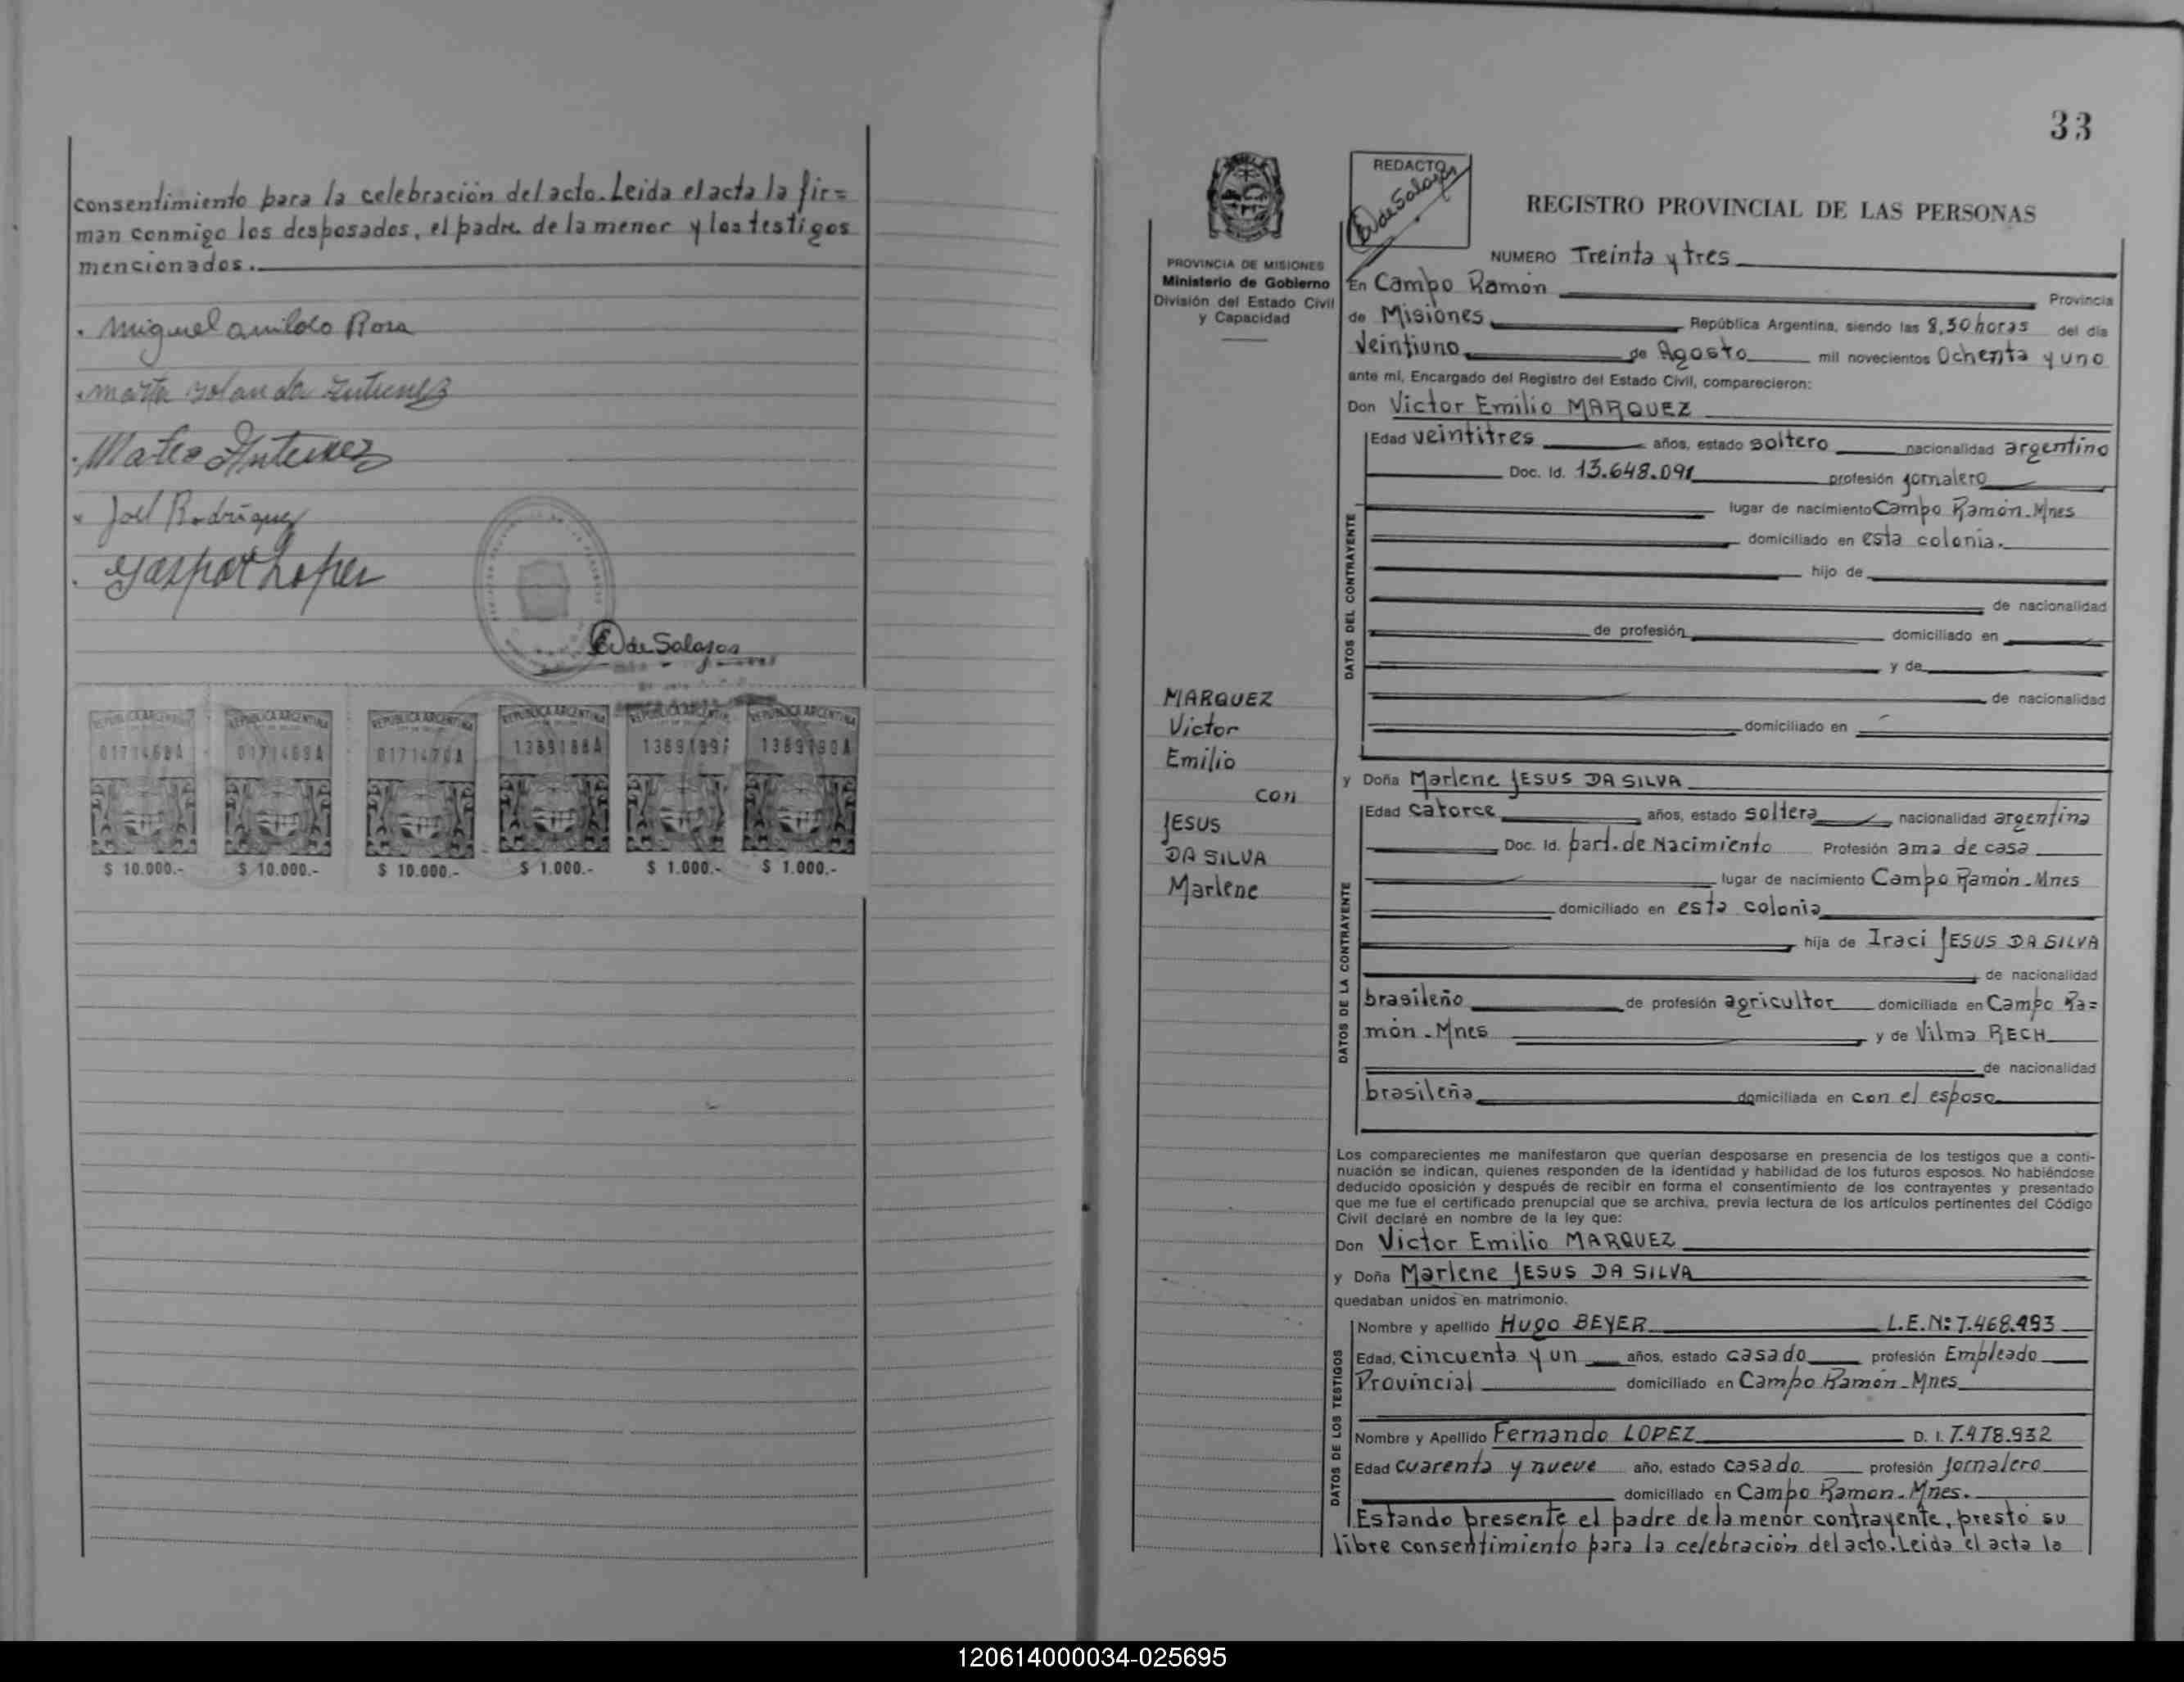 consentimiento para la celebración del acto. Leida el acta la fir=
man conmigo los desposados, el padre de la menor y los testigos
mencionados.
Miguel Rosa
Mateo
Joel Rodriguez
Gaspar Lopez
de Salazar
REPUBLICA ARGENTINA
REPUBLICA ARGENTINA
REPUBLICA ARGENTINA
REPUBLICA ARGENTINA
REPUBLICA ARGENTINA
REPUBLICA ARGENTINA
0171468A
0171469A
0171470A
1389188A
1389190A
$ 10.000.-
$ 10.000.-
$ 10.000.-
$ 1.000.-
$ 1.000.-
$ 1.000.-
33
PROVINCIA DE MISIONES
Ministerio de Gobierno
División del Estado Civil
y Capacidad
REDACTO
de Salazar
REGISTRO PROVINCIAL DE LAS PERSONAS
NUMERO Treinta y tres
En Campo Ramón Provincia
de Misiones República Argentina, siendo las 8,30 horas del día
Veintiuno de Agosto mil novecientos Ochenta y uno
ante mí, Encargado del Registro del Estado Civil, comparecieron:
Don Victor Emilio MARQUEZ
DATOS DEL CONTRAYENTE
Edad veintitres años, estado soltero nacionalidad argentino
Doc. Id. 13.648.091 profesión jornalero
lugar de nacimiento Campo Ramón-Mnes
domiciliado en esta colonia.
hijo de
de nacionalidad
de profesión domiciliado en
y de
de nacionalidad
domiciliado en
MARQUEZ
Victor
Emilio
con
JESUS
DA SILVA
Marlene
y Doña Marlene JESUS DA SILVA
DATOS DE LA CONTRAYENTE
Edad catorce años, estado soltera nacionalidad argentina
Doc. Id. part. de Nacimiento Profesión ama de casa
lugar de nacimiento Campo Ramón-Mnes
domiciliado en esta colonia
hija de Iraci JESUS DA SILVA
de nacionalidad
brasileño de profesión agricultor domiciliada en Campo Ra=
món-Mnes y de Vilma RECH
de nacionalidad
brasileña domiciliada en con el esposo
Los comparecientes me manifestaron que querían desposarse en presencia de los testigos que a conti-
nuación se indican, quienes responden de la identidad y habilidad de los futuros esposos. No habiéndose
deducido oposición y después de recibir en forma el consentimiento de los contrayentes y presentado
que me fue el certificado prenupcial que se archiva, previa lectura de los artículos pertinentes del Código
Civil declaré en nombre de la ley que:
Don Victor Emilio MARQUEZ
y Doña Marlene JESUS DA SILVA
quedaban unidos en matrimonio.
DATOS DE LOS TESTIGOS
Nombre y apellido Hugo BEYER L.E.Nº 7.468.493
Edad, cincuenta y un años, estado casado profesión Empleado
Provincial domiciliado en Campo Ramón-Mnes
Nombre y Apellido Fernando LOPEZ D. I. 7.478.932
Edad cuarenta y nueve año, estado casado profesión Jornalero
domiciliado en Campo Ramon-Mnes.
Estando presente el padre de la menor contrayente, presto su
libre consentimiento para la celebración del acto. Leida el acta la
120614000034-025695